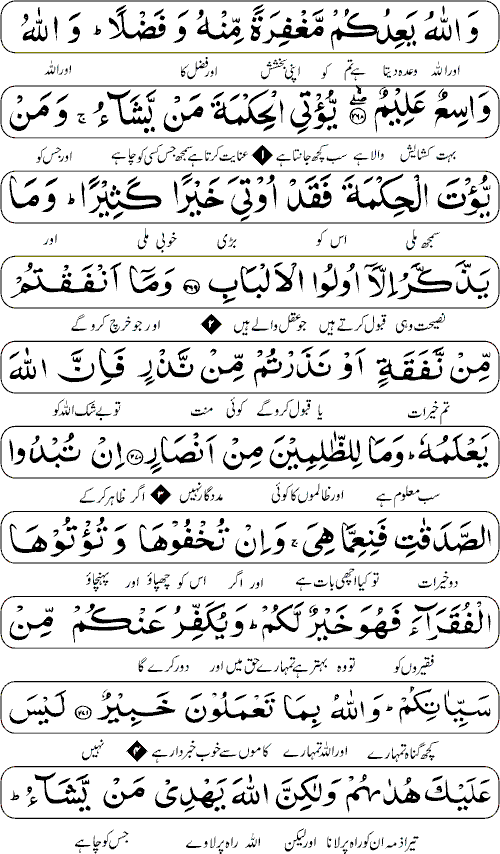 وَاللّٰهُ يَعِدُكُمْ مَّغْفِرَةً مِّنْهُ وَ فَضْلًا ؕ وَ اللّٰهُ
اور اللہ وعدہ دیتا ہے تم کو اپنی بخشش اور فضل کا اور اللہ
وَاسِعٌ عَلِيْمٌ ۖۙ ﴿۲۶۸﴾ يُّؤْتِي الْحِكْمَةَ مَنْ يَّشَآءُ ۚ وَ مَنْ
بہت کشایش والا ہے سب کچھ جانتا ہے ۱ عنایت کرتا ہے سمجھ جس کسی کو چاہے اور جس کو
يُّؤْتَ الْحِكْمَةَ فَقَدْ اُوْتِيَ خَيْرًا كَثِيْرًا ؕ وَمَا
سمجھ ملی اس کو بڑی خوبی ملی اور
يَذَّكَّرُ اِلَّاۤ اُولُوا الْاَلْبَابِ ﴿۲۶۹﴾ وَمَاۤ اَنْفَقْتُمْ
نصیحت وہی قبول کرتے ہیں جو عقل والے ہیں ۲ اور جو خرچ کرو گے
مِّنْ نَّفَقَةٍ اَوْ نَذَرْتُمْ مِّنْ نَّذْرٍ فَاِنَّ اللّٰهَ
تم خیرات یا قبول کرو گے کوئی منت تو بے شک اللہ کو
يَعْلَمُهٗ ؕ وَمَا لِلظّٰلِمِيْنَ مِنْ اَنْصَارٍ ﴿۲۷۰﴾ اِنْ تُبْدُوا
سب معلوم ہے اور ظالموں کا کوئی مددگار نہیں ۳ اگر ظاہر کر کے
الصَّدَقٰتِ فَنِعِمَّا هِيَ ۚ وَاِنْ تُخْفُوْهَا وَ تُؤْتُوْهَا
دو خیرات تو کیا اچھی بات ہے اور اگر اس کو چھپاؤ اور پہنچاؤ
الْفُقَرَآءَ فَهُوَ خَيْرٌ لَّكُمْ ؕ وَيُكَفِّرُ عَنْكُمْ مِّنْ
فقیروں کو تو وہ بہتر ہے تمہارے حق میں اور دور کرے گا
سَيِّاٰتِكُمْ ؕ وَاللّٰهُ بِمَا تَعْمَلُوْنَ خَبِيْرٌ ﴿۲۷۱﴾ لَيْسَ
کچھ گناہ تمہارے اور اللہ تمہارے کاموں سے خوب خبردار ہے ۴ نہیں
عَلَيْكَ هُدٰىهُمْ وَلٰكِنَّ اللّٰهَ يَهْدِيْ مَنْ يَّشَآءُ ؕ
تیرا ذمہ ان کو راہ پر لانا اور لیکن اللہ راہ پر لاوے جس کو چاہے